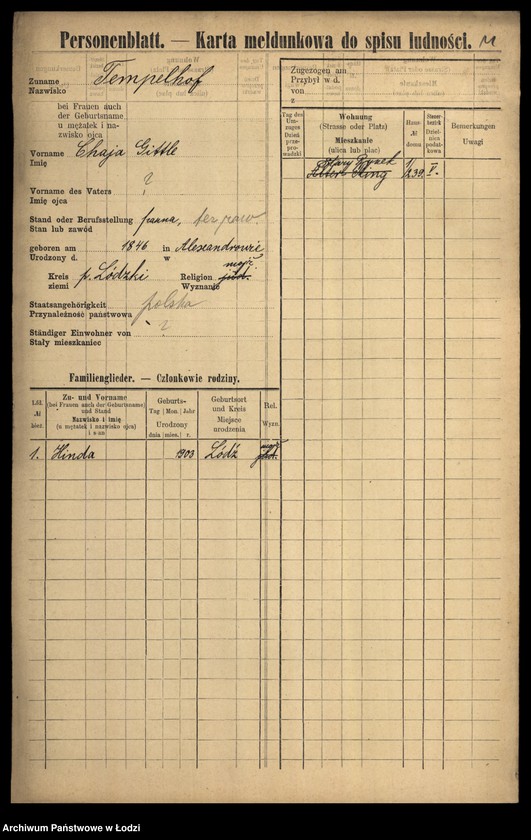 Personenblatt. — Karta meldunkowa do spisu ludności. M
Zuname
Nazwisko
Tempelhof
bei Frauen auch
der Geburtsname
u mężatek i na-
zwisko ojca
Vorname Chaja Gittle
Imię
?
Vorname des Vaters
Imię ojca
Stand oder Berufsstellung panna, bez zaw.
Stan lub zawód
geboren am 1846 in Alexandrowie
Urodzony d. w
mojż.
Kreis p. Łódzki Religion
ziemi Wyznanie
Staatsangehörigkeit polska
Przynależność państwowa
Ständiger Einwohner von ?
Stały mieszkaniec
Familienglieder. — Członkowie rodziny.
Lfd.
№
bież.
Zu- und Vorname
(bei Frauen auch der Geburtsname)
und Stand
Nazwisko i imię
(u mężatek i nazwisko ojca)
i stan
Geburts-
Tag Mon. Jahr
Urodzony
dnia mies. r.
Geburtsort
und Kreis
Miejsce
urodzenia
Rel.
Wyzn.
1. Hinda 1903 Łódź mojż.
Zugezogen am
Przybył w d.
von
z
Tag des
Um-
zuges
Dzień
prze-
pro-
wadzki
Wohnung
(Strasse oder Platz)
Mieszkanie
(ulica lub plac)
Haus-
№
domu
Steuer-
bezirk
Dziel-
nica
podat-
kowa
Bemerkungen
Uwagi
Stary Rynek
Alter Ring 1/239. V.
Archiwum Państwowe w Łodzi